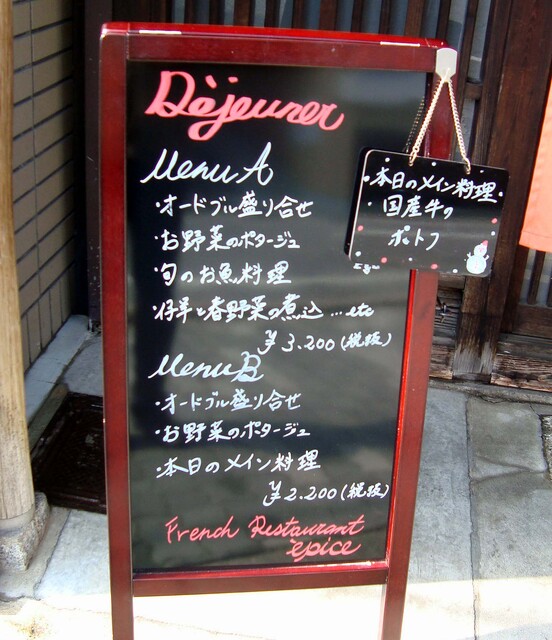 Dèjeuner
Menu A
・オードブル盛り合せ
・お野菜のポタージュ
・旬のお魚料理
・仔羊と春野菜の煮込...etc
¥3.200(税抜)
Menu B
・オードブル盛り合せ
・お野菜のポタージュ
・本日のメイン料理
¥2.200(税抜)
French Restaurant
épice
・本日のメイン料理・
国産牛の
ポトフ